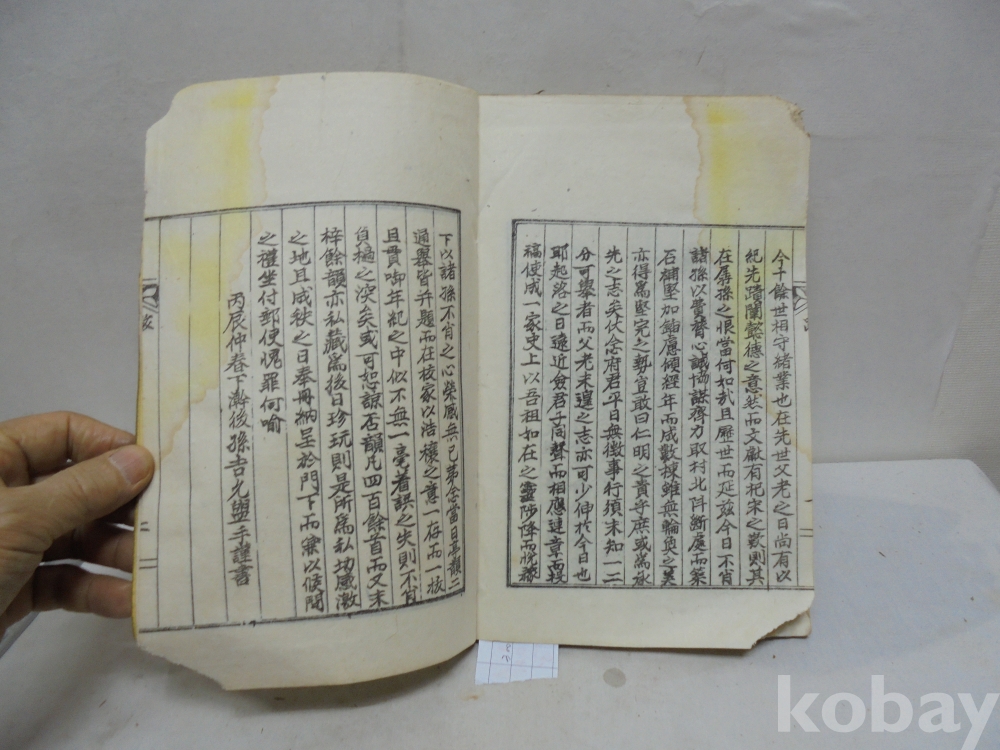 今十餘世相守緒業也在先世父老之日尚有以
紀先蹟闡懿德之意然而文獻有杞宋之歎則其
在孱孫之恨當何如哉且歷世而延玆今日不肖
諸孫以賣替心誠協謀齊力取村北阧斷處而築
石補堅加鋤應傾經年而成數棟雖無輪奐之美
亦得爲堅完之勢豈敢曰仁明之賁守庶或爲承
先之志矣伏念府君平日無徵事行須末知一二
分可擧者而父老未遑之志亦可少伸於今日也
耶起落之日遠近僉君子同聲而相應連章而投
福使成一家史上以吾祖如在之靈陟降而悅豫
下以諸孫不肖之心榮感無已苐念當日亭韻二
通擧皆幷題而在校家以浩穰之意一存而一核
且貫啣年紀之中似不無一毫着誤之失則不肖
負過之深矣或可恕諒否韻凡四百餘首而又末
梓餘韻亦私藏爲後日珍玩則是所爲私切感激
之地且成秩之日奉冊納呈於門下而宲以候問
之禮坐付郵便愧罪何喩
丙辰仲春下澣後孫吉允盥手謹書
kobay